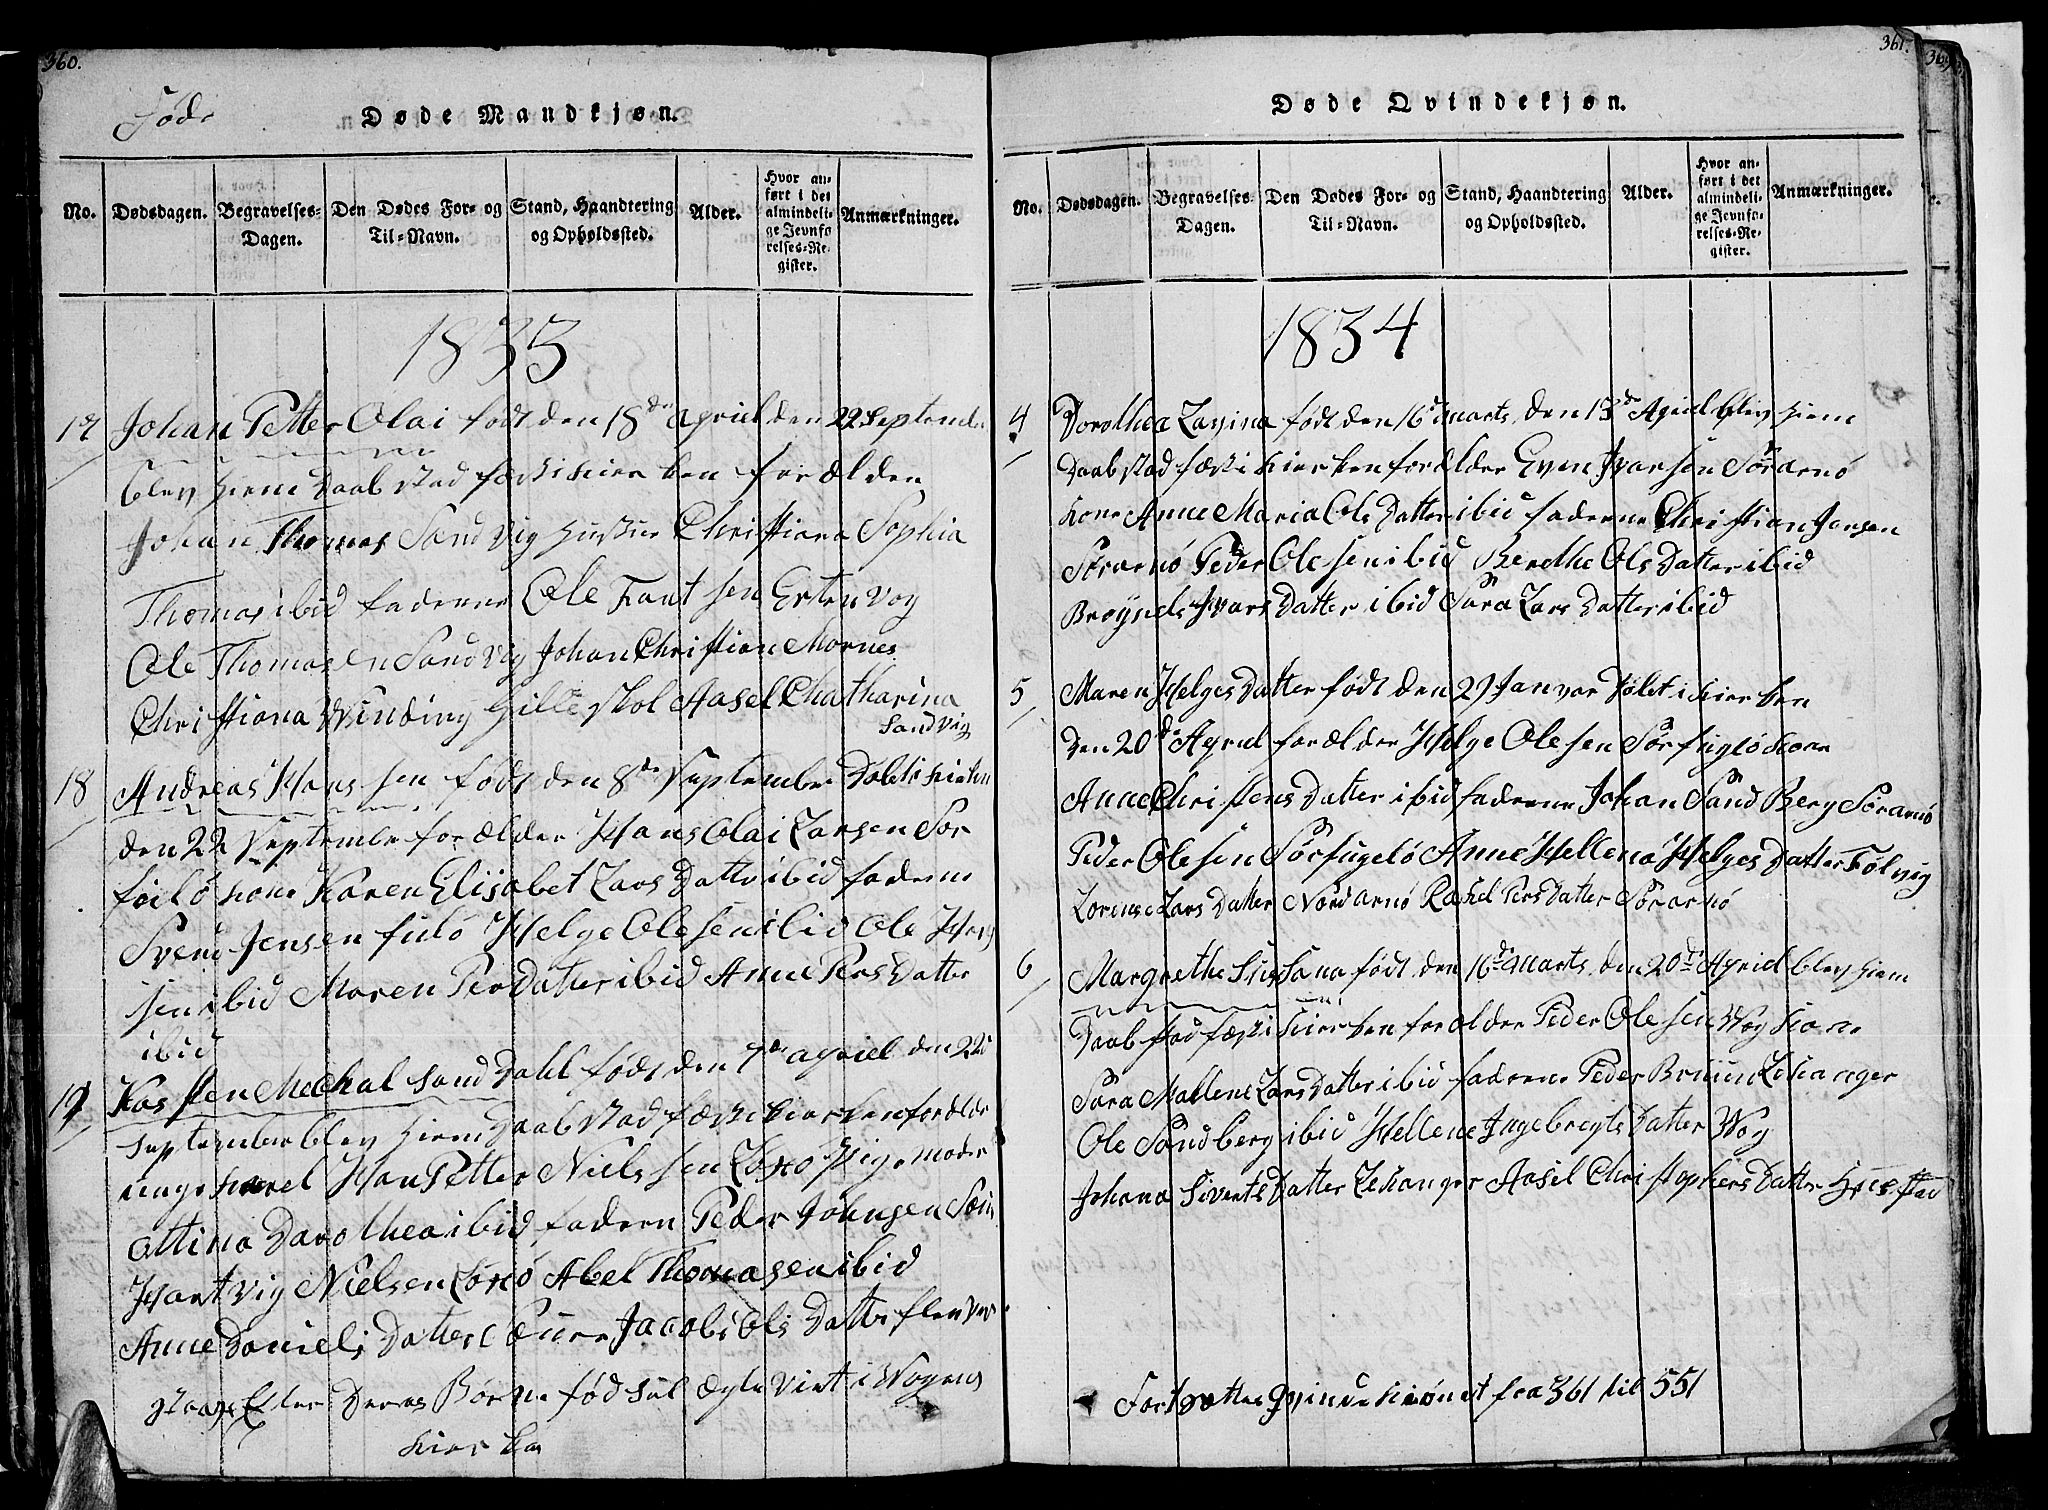 360.
Føde
Døde Mandkjøn.
No.
Dødsdagen.
Begravelses-
Dagen.
Den Dødes For- og
Til-Navn.
Stand, Haandtering
og Opholdssted.
Alder.
Hvor an-
ført i det
almindeli-
ge Jevnfø
relses-Re-
gister.
Anmærkninger.
1833
17 Johan Petter Olai født den 18de April den 22 Septemb
blev hiem Daab stad fæst i kierken forælden
Johan Thomas Sand vig Christiana Sophia
Thomas ibid fadderne Ole Fant sen Ertenvog
Ole Thomasen Sand vig Johan Christian Mornes
Christiana Winding Gilleskol Aasel Chatharina
Sandvig
18 Andreas Hans sen født den 8de September Døbt i kierken
den 22 September forælder Hans Olai Larsen Sør
foilø kone Karen Elisabet Lars Datter ibid fadderne
Svend Jensen fulø Helge Ole sen ibid Ole Hans
sen ibid Maren Per Datter ibid Anne Pers Datter
ibid
19 Kasten Mechal Sand Dahl født den 7de april den 22
September blev hiem Daab stad fæst i kierken forælder
unge karel Han Petter Niels sen Pige moder
Ottina Darothea ibid faddern Peder Johnsen
Hart vig Nielsen Abel Thomasen ibid
Anne Daniels Datter Jacobi Ols Datter
Efter Deres Børne fød sel Ægte viet i Wogens
kier ken
361.
Døde Qvindekjøn.
No.
Dødsdagen.
Begravelses-
Dagen.
Den Dødes For- og
Til-Navn.
Stand, Haandtering
og Opholdssted.
Alder.
Hvor an-
ført i det
almindeli-
ge Jevnfø-
relses-Re-
gister.
Anmærkninger.
1834
4 Dorothea Lavina født den 16de marts den 13de April blev hiem
Daab stad fæst i kierken forælder Even Ivarsen Sørarnø
kone Anne Maria Ols Datter ibid fadderne Christian Jensen
Sørarnø Peder Ole sen ibid Berethe Ols Datter ibid
Brøynels Ivars Datter ibid Sara Lars Datter ibid
5 Maren Helges Datter født den 29 Januar Døbt i kierken
den 20de April forælder Helge Ole sen Sørfuglø kone
Anne Christens Datter ibid fadderne Johan Sand Berg Sørarnø
Peder Ole sen Sørfugelø Anne Hellena Helges Datter Følvig
Lorense Lars Datter Nordarnø Rakel Pers Datter Sørarnø
6 Margrethe Susana født den 16de marts den 20de April blev hiem
Daab stad fæst i kierken forælder Peder Ole sen Wog kone
Sara Mallene Lars Datter ibid fadderne Peder Bruun Lekanger
Ole Sandberg ibid Hellene Ingebregts Datter Wog
Johana Siverts Datter Lekanger Aasel Christophers Datter
Fortsættes Qvinde kiønet fra 361 til 551